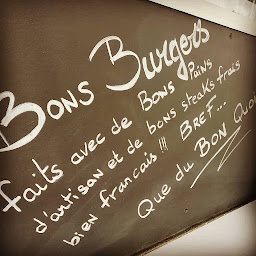 Bons Burgers
faits avec de Bons Pains
d'artisan et de bons steaks frais
bien français !!! BREF...
Que du BON QUOI